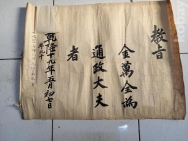 教旨
金萬全爲
通政大夫
者
乾隆十九年五月初七日